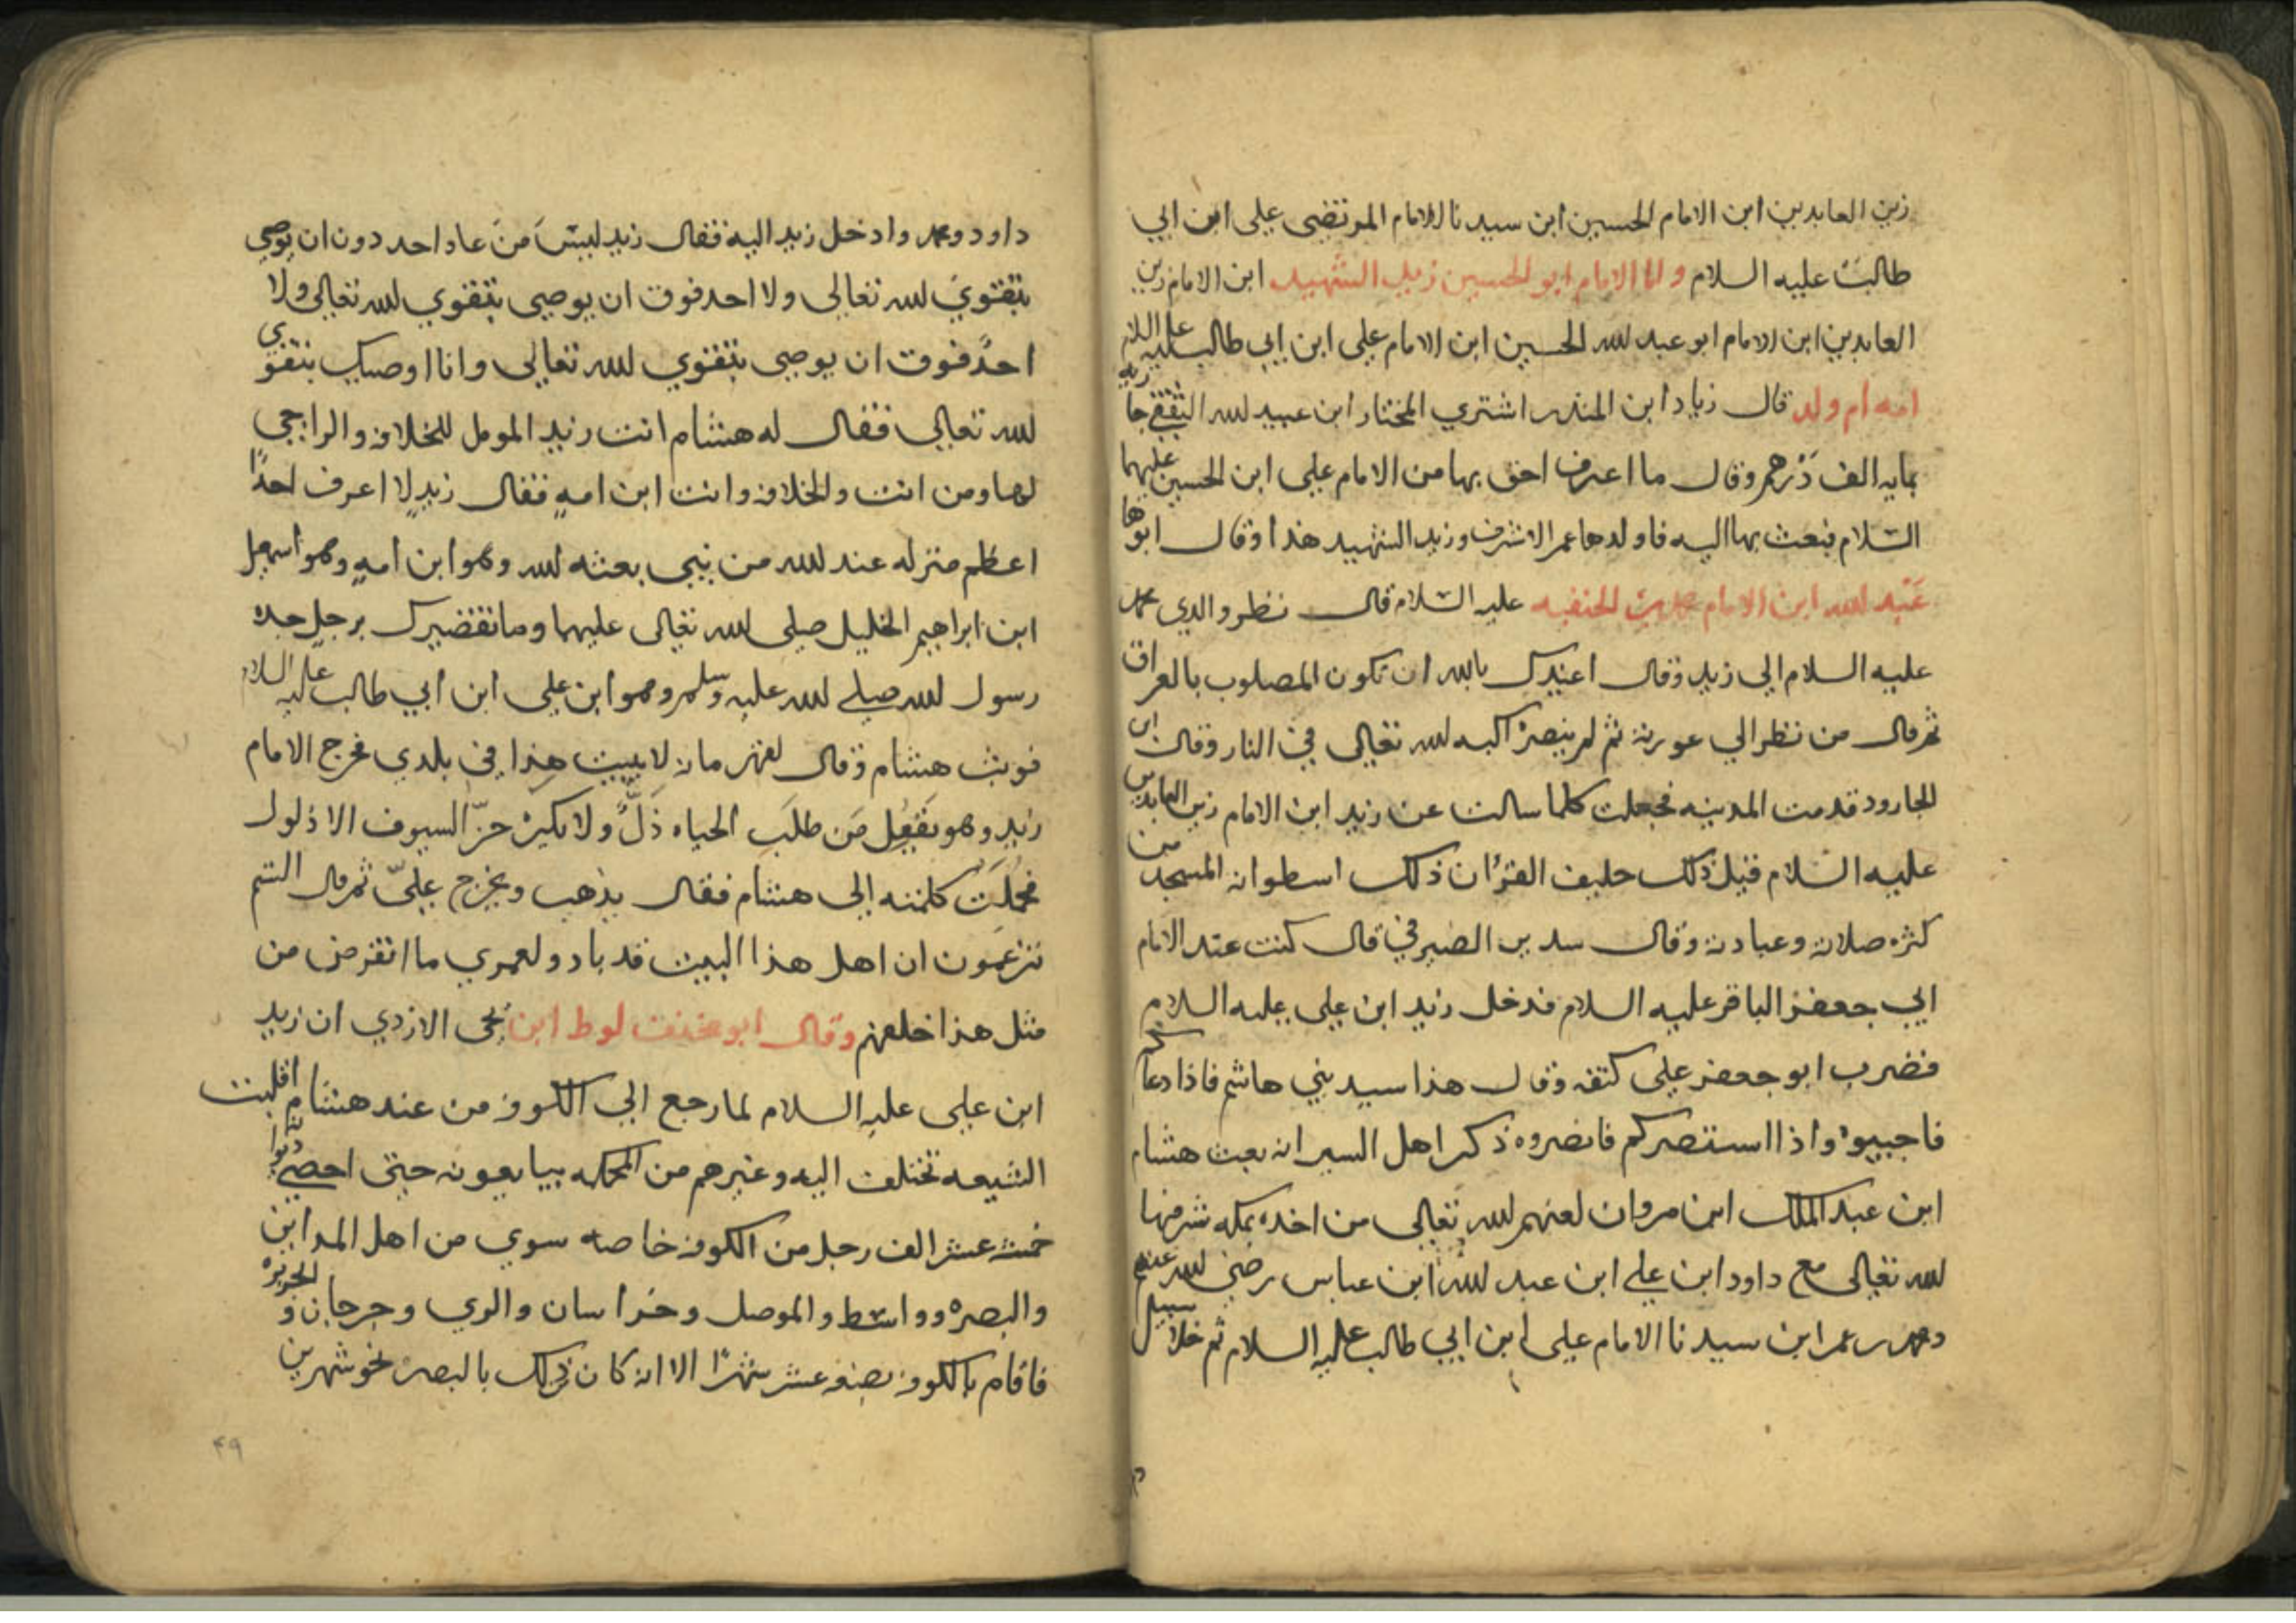 زين العابدين ابن الامام الحسين ابن سيدنا الامام المرتضى على ابن ابي
طالب عليه السلام واما الامام ابو الحسين زيد الشهيد ابن الامام زين
العابدين ابن الامام ابو عبد لله الحسين ابن الامام على ابن ابي طالب عليه السلام
امه ام ولد قال زياد ابن المنذر اشتري المختار ابن عبيد لله الثقفي جاريه
بمايه الف درهم وقال ما اعرف احق بها من الامام على ابن الحسين عليهما
السلام فبعث بها اليه فاولدها عمر الاشرف وزيد الشهيد هذا وقال ابوها
عبد لله ابن الامام محمد ابن الحنفيه عليه السلام قال نظر والدي محمد
عليه السلام الي زيد وقال اعيذك بالله ان تكون المصلوب بالعراق
ثم قال من نظر الي عورته ثم لم ينصره اكبه لله تعالى في النار وقال ابي
الجارود قدمت المدينه فجعلت كلما سالت عن زيد ابن الامام زين العابدين
عليه السلام قيل ذلك حليف القرءان ذلك اسطوانه المسجد من
كثره صلاته وعبادته وقال سدير الصيرفي قال كنت عند الامام
ابي جعفر الباقر عليه السلام فدخل زيد ابن على عليه السلام
فضرب ابو جعفر على كتفه وقال هذا سيد بني هاشم فاذا دعاكم
فاجيبوا واذا استنصركم فانصروه ذكر اهل السير انه بعث هشام
ابن عبد الملك ابن مروان لعنهم لله تعالى من اخذه بمكه شرفها
لله تعالى مع داود ابن على ابن عبد لله ابن عباس رضي لله عنهم
ومحمد بن عمر ابن سيدنا الامام على ابن ابي طالب عليه السلام ثم خلا سبيل
داود ومحمد وادخل زيد اليه فقال زيد ليس من عاد احد دون ان يوصي
بتقوي لله تعالى ولا احد فوق ان يوصي بتقوي لله تعالى ولا
احد فوق ان يوصي بتقوي لله تعالى وانا اوصيك بتقوي
لله تعالى فقال له هشام انت زيد المومل للخلافه والراجي
لها ومن انت والخلافه وانت ابن امه فقال زيد لا اعرف احدًا
اعظم منزله عند لله من نبي بعثه لله وهو ابن امه وهو اسمعيل
ابن ابراهيم الخليل صلى لله تعالى عليهما وما تقصيرك برجل جده
رسول لله صلى لله عليه وسلم وهو ابن على ابن ابي طالب عليه السلام
فوثب هشام وقال لقهرمانه لا يبيت هذا في بلدي فخرج الامام
زيد وهو يقول من طلب الحياه ذل ولا يكره حر السيوف الا ذلول
فحملت كلمته الى هشام فقال يذهب ويخرج علي ثم قال الستم
تزعمون ان اهل هذا البيت قد باد ولعمري ما انقرض من
مثل هذا خلفهم وقال ابو مخنف لوط ابن يحي الازدي ان زيد
ابن على عليه السلام لما رجع الي الكوفه من عند هشام اقبلت
الشيعه تختلف اليه وغيرهم من المحكمه يبايعونه حتى احصي ديوانه
خمسه عشر الف رجل من الكوفه خاصه سوي من اهل المداين
والبصره وواسط والموصل وخراسان والري وجرجان والجزيره
فاقام بالكوفه بضعه عشر شهرًا الا انه كان ذلك بالبصره نحو شهرين
۴۹